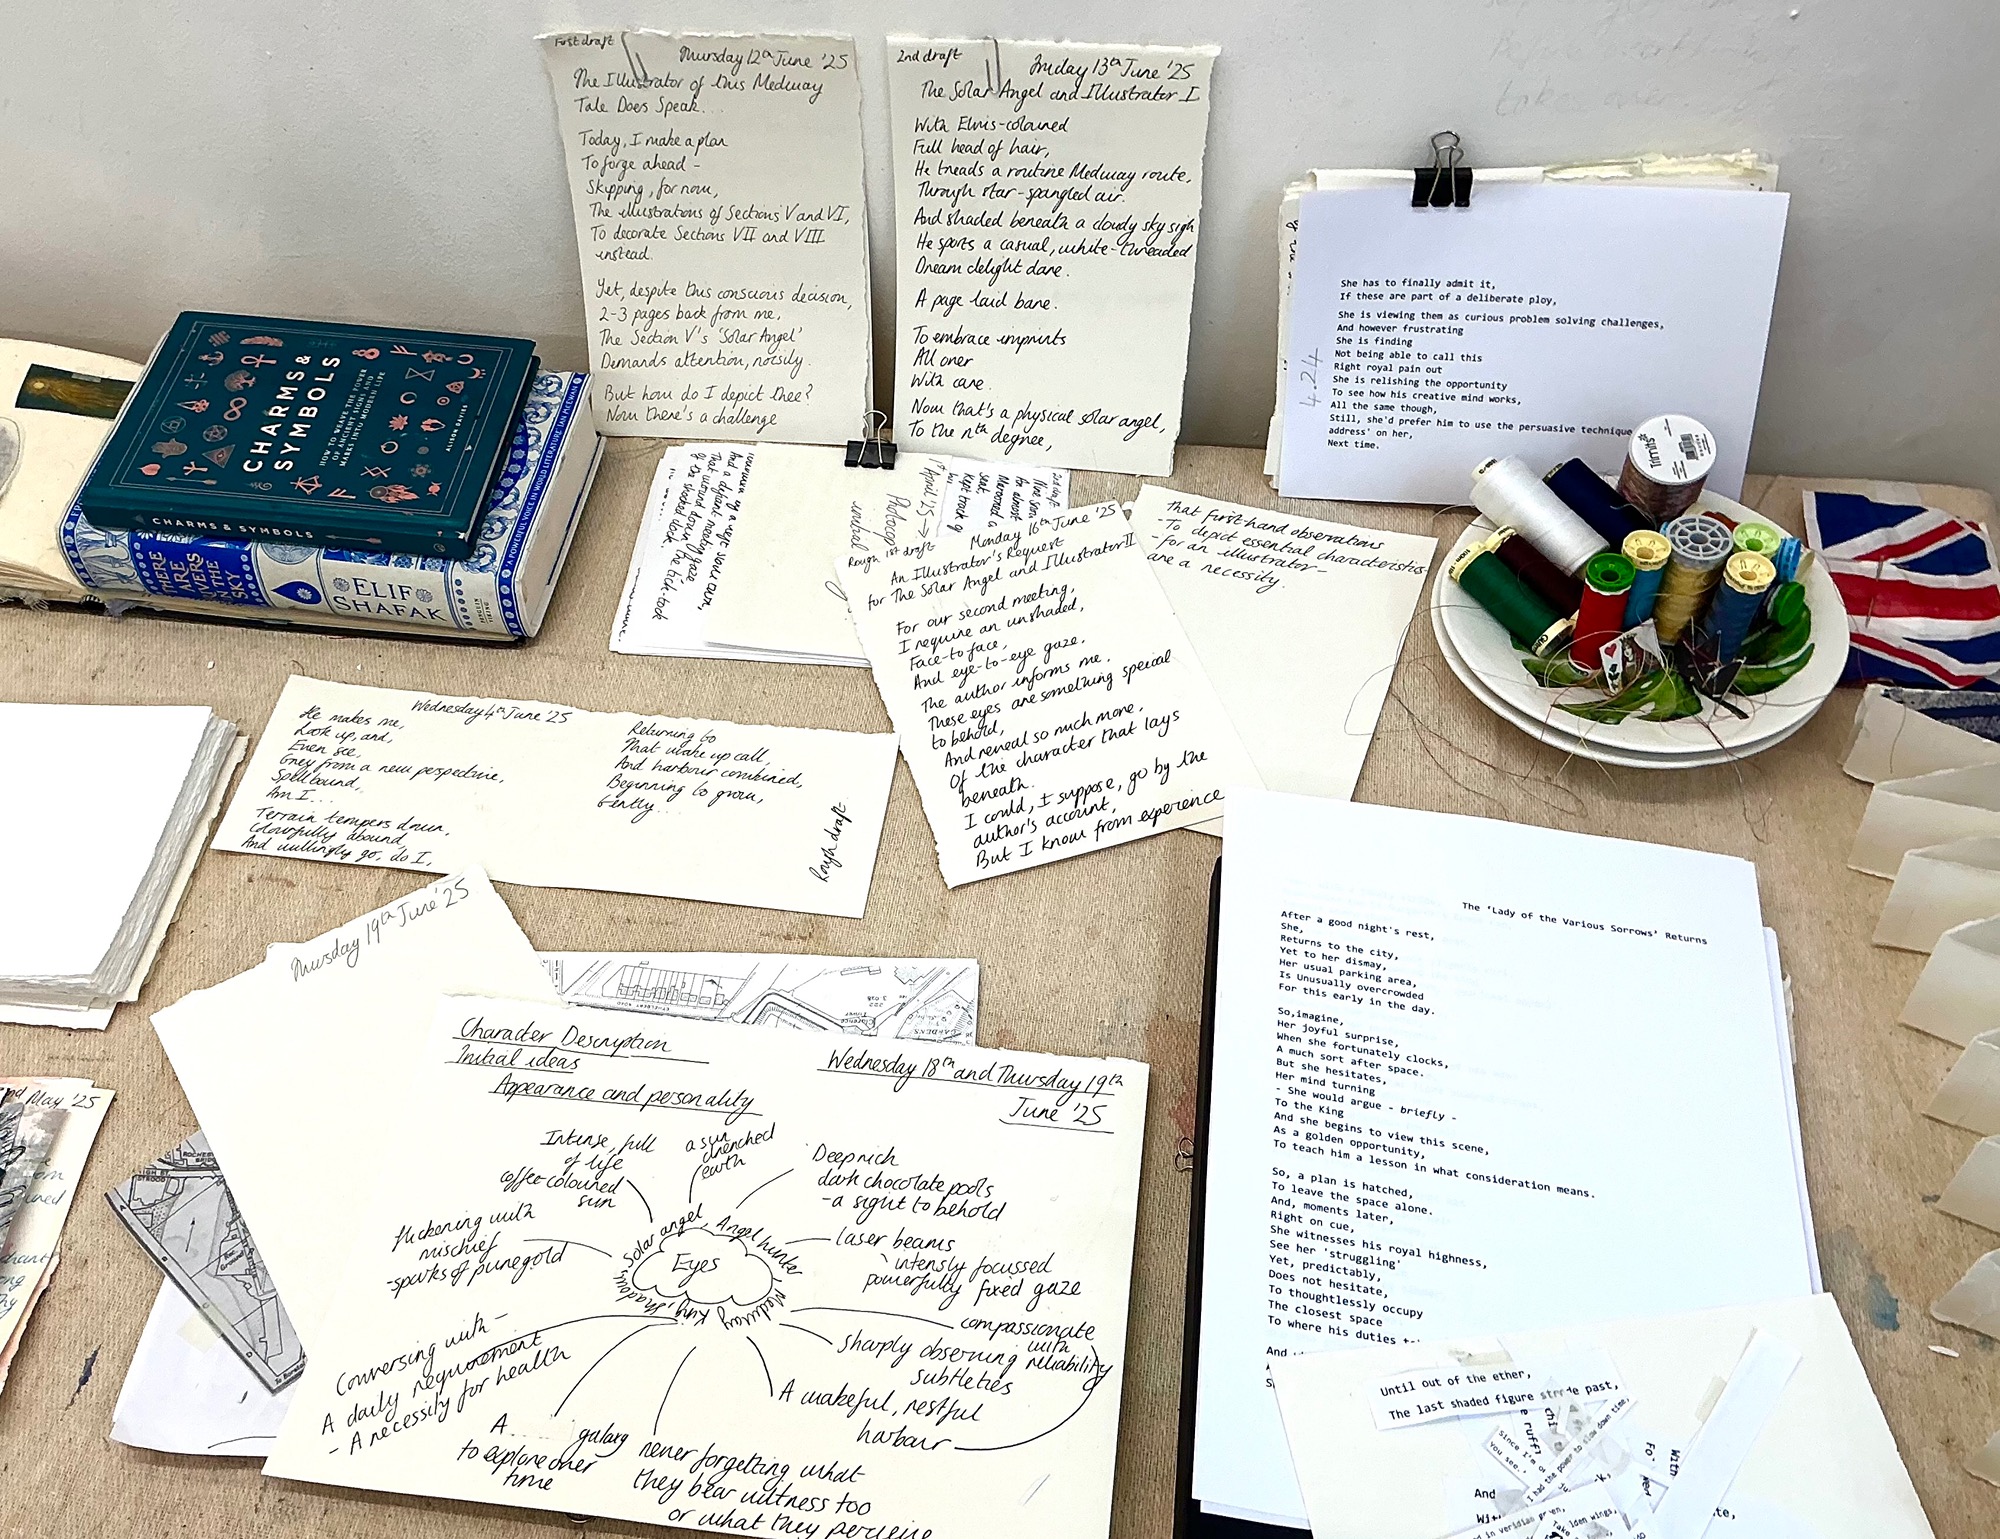 First draft
Thursday 12th June '25
The Illustrator of this Medway
Tale Does Speak...
Today, I make a plan
To forge ahead -
Skipping, for now,
The illustrations of Sections V and VI,
To decorate Sections VII and VIII
instead.
Yet, despite this conscious decision,
2-3 pages back from me,
The Section V's 'Solar Angel'
Demands attention, noisily.
But how do I depict thee?
Now there's a challenge
2nd draft
Friday 13th June '25
The Solar Angel and Illustrator I
With Elvis-coloured
Full head of hair,
He treads a routine Medway route,
Through star-spangled air.
And shaded beneath a cloudy sky sigh
He sports a casual, white-threaded
Dream delight dare.
A page laid bare.
To embrace imprints
All over
With care.
Now that's a physical solar angel,
To the nth degree,
She has to finally admit it,
If these are part of a deliberate ploy,
She is viewing them as curious problem solving challenges,
And however frustrating
She is finding
Not being able to call this
Right royal pain out
She is relishing the opportunity
To see how his creative mind works,
All the same though,
Still, she'd prefer him to use the persuasive technique
address' on her,
Next time.
4.24
CHARMS &
SYMBOLS
HOW TO WEAVE THE POWER
OF ANCIENT SIGNS AND
MARKS INTO MODERN LIFE
ALISON DAVIES
CHARMS & SYMBOLS
THERE
ARE
RIVERS
IN THE
SKY
ELIF
SHAFAK
'A POWERFUL VOICE IN WORLD LITERATURE' IAN MCEWAN
And a defiant meeting face
That wound down the tick-tock
Of the stacked clock.
1st April '25
Photocopy
initial
2nd draft
kept track of
Rough 1st draft
Monday 16th June '25
An Illustrator's Request
for The Solar Angel and Illustrator II
For our second meeting,
I require an unshaded,
Face-to face,
And eye-to-eye gaze.
The author informs me,
These eyes are something special
to behold,
And reveal so much more,
Of the character that lays
beneath.
I could, I suppose, go by the
author's account,
But I know from experience
That first-hand observations
- To depict essential characteristics
- for an illustrator -
are a necessity.
Trimits
Wednesday 4th June '25
He makes me,
Look up, and,
Even see,
Grey from a new perspective,
Spellbound,
Am I...
Terrain tempers down,
Colourfully abound,
And willingly go, do I,
Returning to
That wake up call,
And harbour combined,
Beginning to grow,
Gently...
Rough draft
Thursday 19th June '25
GARDENS
May '25
ROCHESTER
BRIDGE
STROOD
Character Description
Initial ideas
Wednesday 18th and Thursday 19th
June '25
Appearance and personality
Eyes
Solar angel, Angel hunter, Medway King, Shadow,
Intense, full
of life
coffee-coloured
sun
a sun
drenched
earth
Deep rich
dark chocolate pools
- a sight to behold
flickening with
mischief
- sparks of pure gold
laser beams
intensly focussed
powerfully fixed gaze
compassionate
with
reliability
Sharply observing
subtleties
A wakeful, restful
harbour
Conversing with -
A daily requirement
- A necessity for health
A... galaxy
to explore over
time
never forgetting what
they bear witness too
or what they perceive
The 'Lady of the Various Sorrows' Returns
After a good night's rest,
She,
Returns to the city,
Yet to her dismay,
Her usual parking area,
Is Unusually overcrowded
For this early in the day.
So,imagine,
Her joyful surprise,
When she fortunately clocks,
A much sort after space.
But she hesitates,
Her mind turning
- She would argue - briefly -
To the King
And she begins to view this scene,
As a golden opportunity,
To teach him a lesson in what consideration means.
So, a plan is hatched,
To leave the space alone.
And, moments later,
Right on cue,
She witnesses his royal highness,
See her 'struggling'
Yet, predictably,
Does not hesitate,
To thoughtlessly occupy
The closest space
To where his duties
And
Until out of the ether,
The last shaded figure strode past,
Since I'm
you see..
the power to slow down time,
And
With
in veridian green,
Take